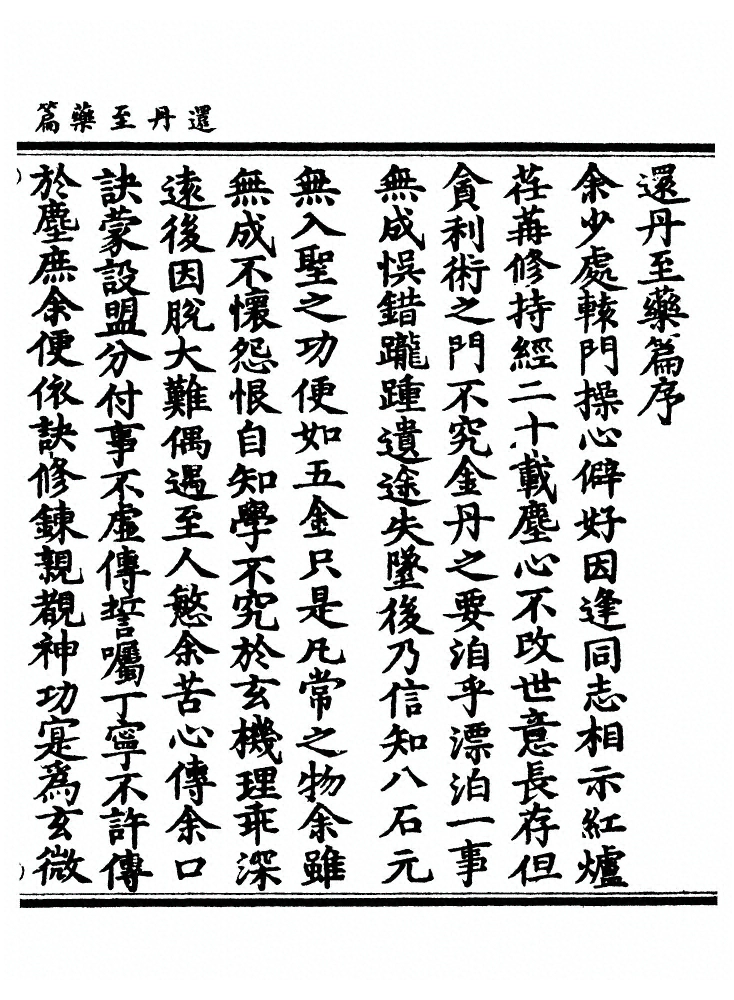 還丹至藥篇
還丹至藥篇序
余少處轅門操心僻好因逢同志相示紅爐
荏苒修持經二十載塵心不改世意長存但
貪利術之門不究金丹之要洎乎漂泊一事
無成悞錯蹤踵遺途失墜後乃信知八石元
無入聖之功便如五金只是凡常之物余雖
無成不懷怨恨自知學不究於玄機理乖深
遠後因脫大難偶遇至人愍余苦心傳余口
訣蒙設盟分付事不虛傳誓囑丁寧不許傳
於塵庶余便依訣修鍊親覩神功寔爲玄微